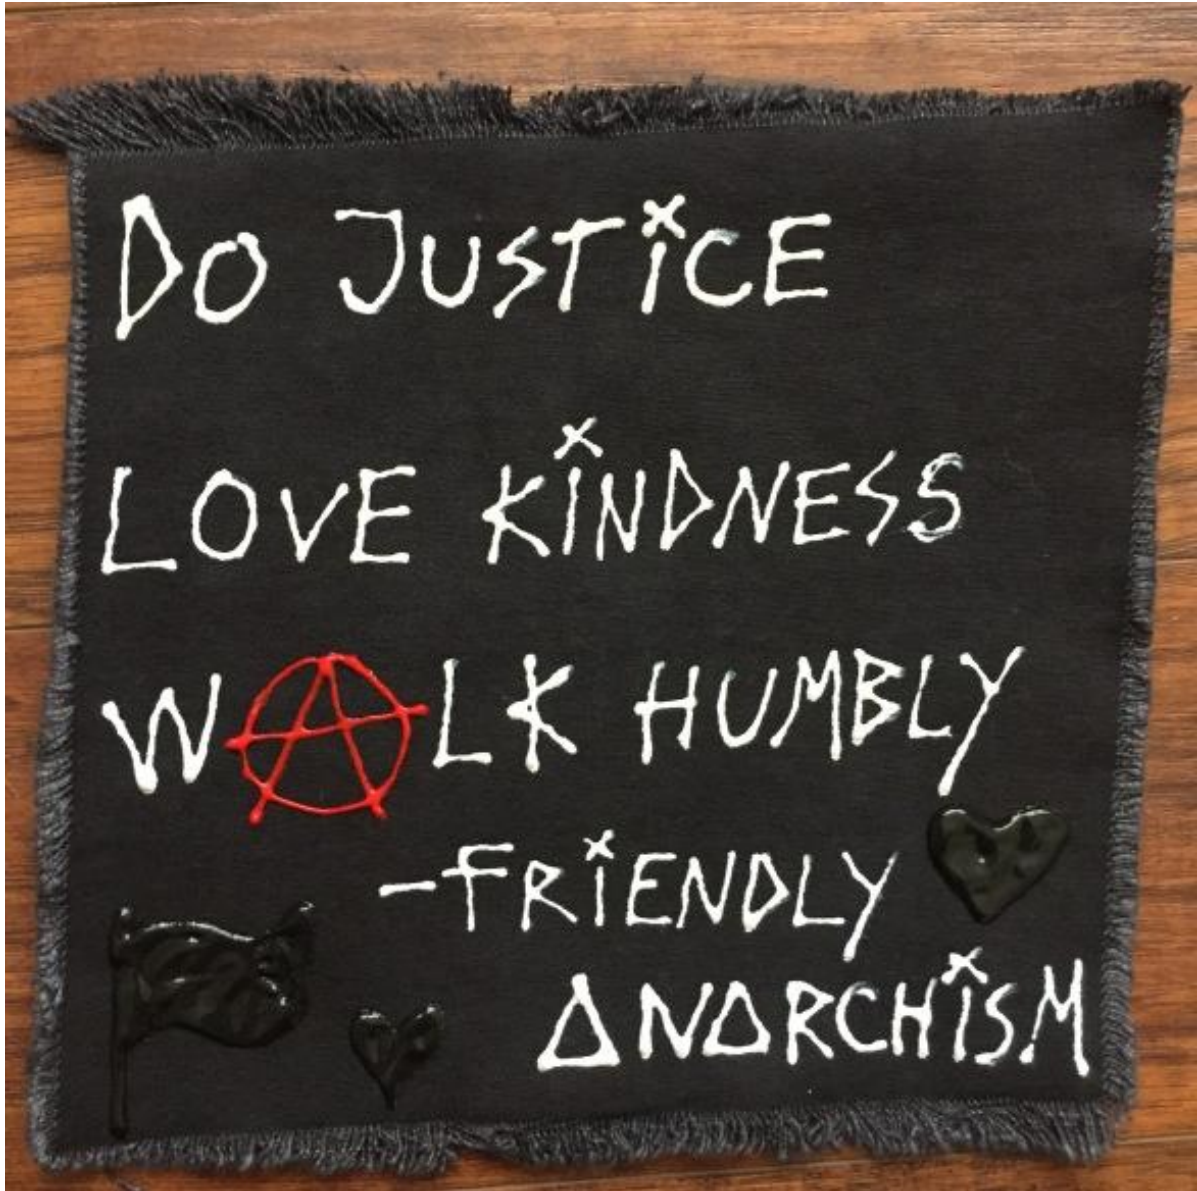 DO JUSTiCE
LOVE KiNDNESS
WALK HUMBLY
-FRiENDLY
ANARCHiSM